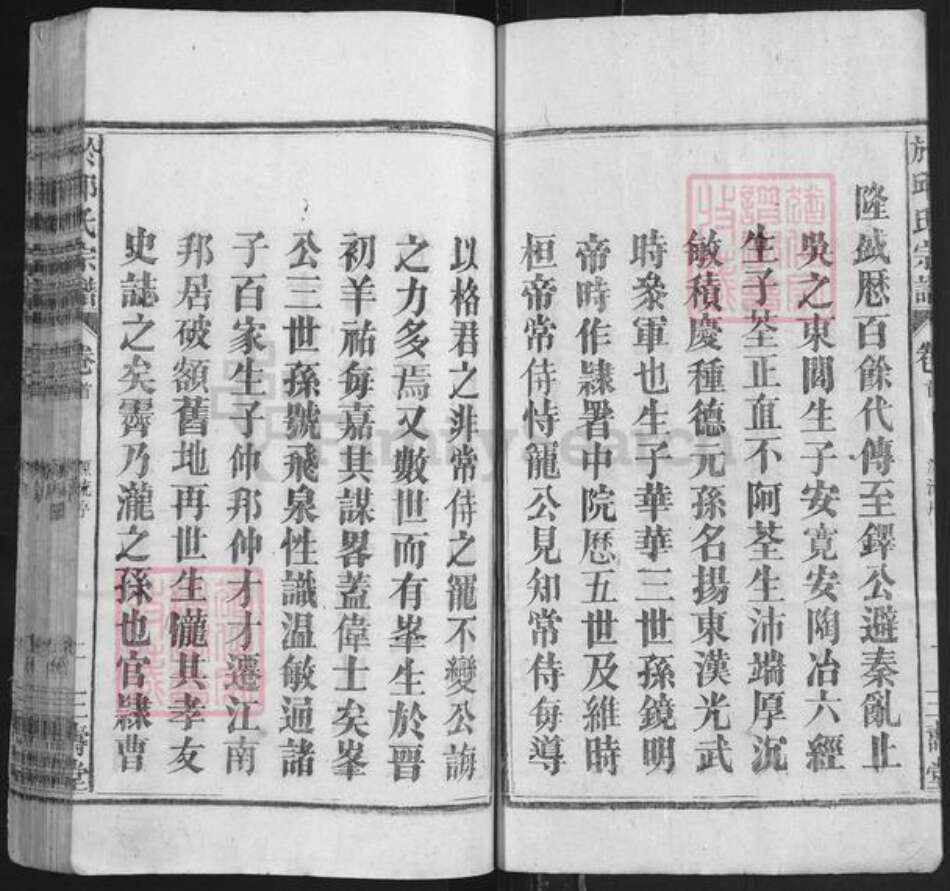 於邱氏宗譜
卷首
三壽堂
隆鉞厯百餘代傳至鐸公避秦亂止
吳之東閶生子安寛安陶冶六經
生子荃正直不阿荃生沛端厚沉
敏積慶種德元孫名揚東漢光武
時叅軍也生子華華三世孫鏡明
帝時作隸署中院厯五世及維時
桓帝常侍恃寵公見知常侍每導
以格君之非常侍之寵不變公誨
之力多焉又數世而有峯生於晋
初羊祜每嘉其謀畧蓋偉士矣峯
公三世孫號飛泉性識温敏通諸
子百家生子仲邦仲才才遷江南
邦居破額舊地再世生儱其孝友
史誌之矣霽乃瀧之孫也官隸曹
於邱氏宗譜
卷首
源流序
二
三壽堂
FamilySearch